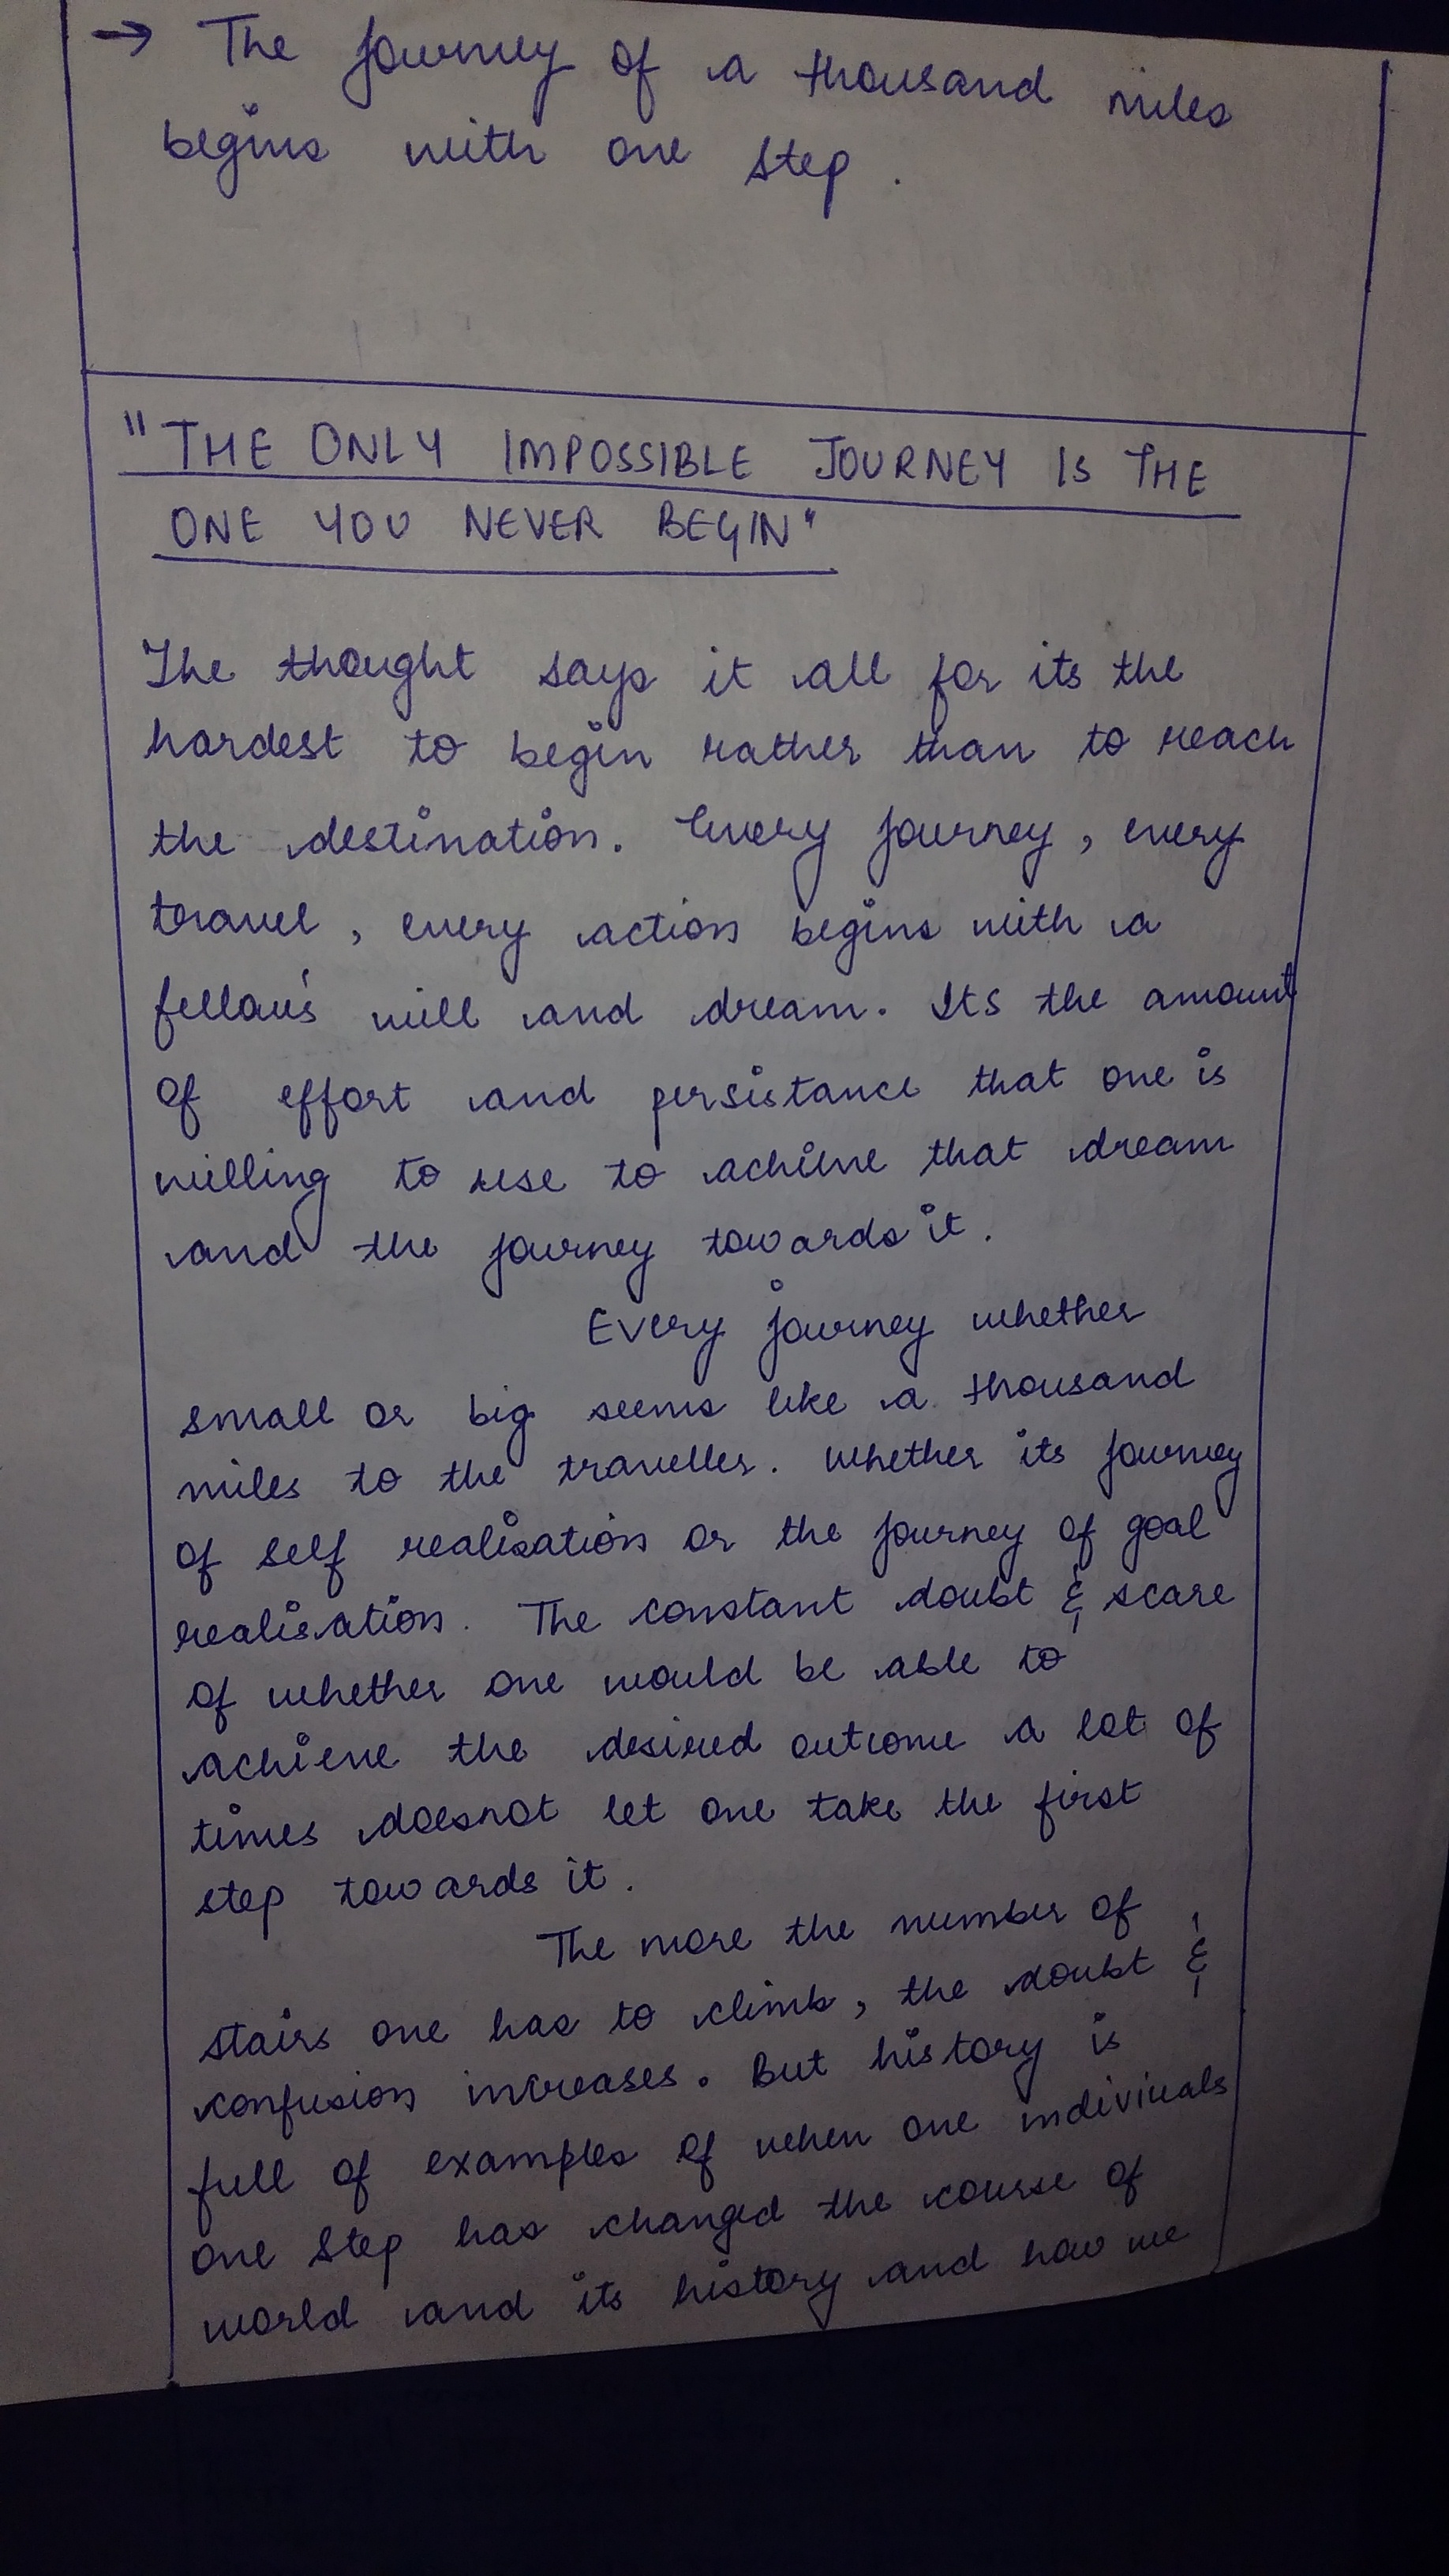 → The journey of a thousand miles
begins with one step.
"THE ONLY IMPOSSIBLE JOURNEY IS THE
ONE YOU NEVER BEGIN"
The thought says it all for its the
hardest to begin rather than to reach
the destination. Every journey, every
travel, every action begins with a
fellow's will and dream. Its the amount
of effort and persistance that one is
willing to use to achieve that dream
and the journey towards it.
Every journey whether
small or big seems like a thousand
miles to the traveller. Whether its journey
of self realisation or the journey of goal
realisation. The constant doubt & scare
of whether one would be able to
achieve the desired outcome a lot of
times doesnot let one take the first
step towards it.
The more the number of
stairs one has to climb, the doubt &
confusion increases. But history is
full of examples of when one indiviuals
one step has changed the course of
world and its history and how we